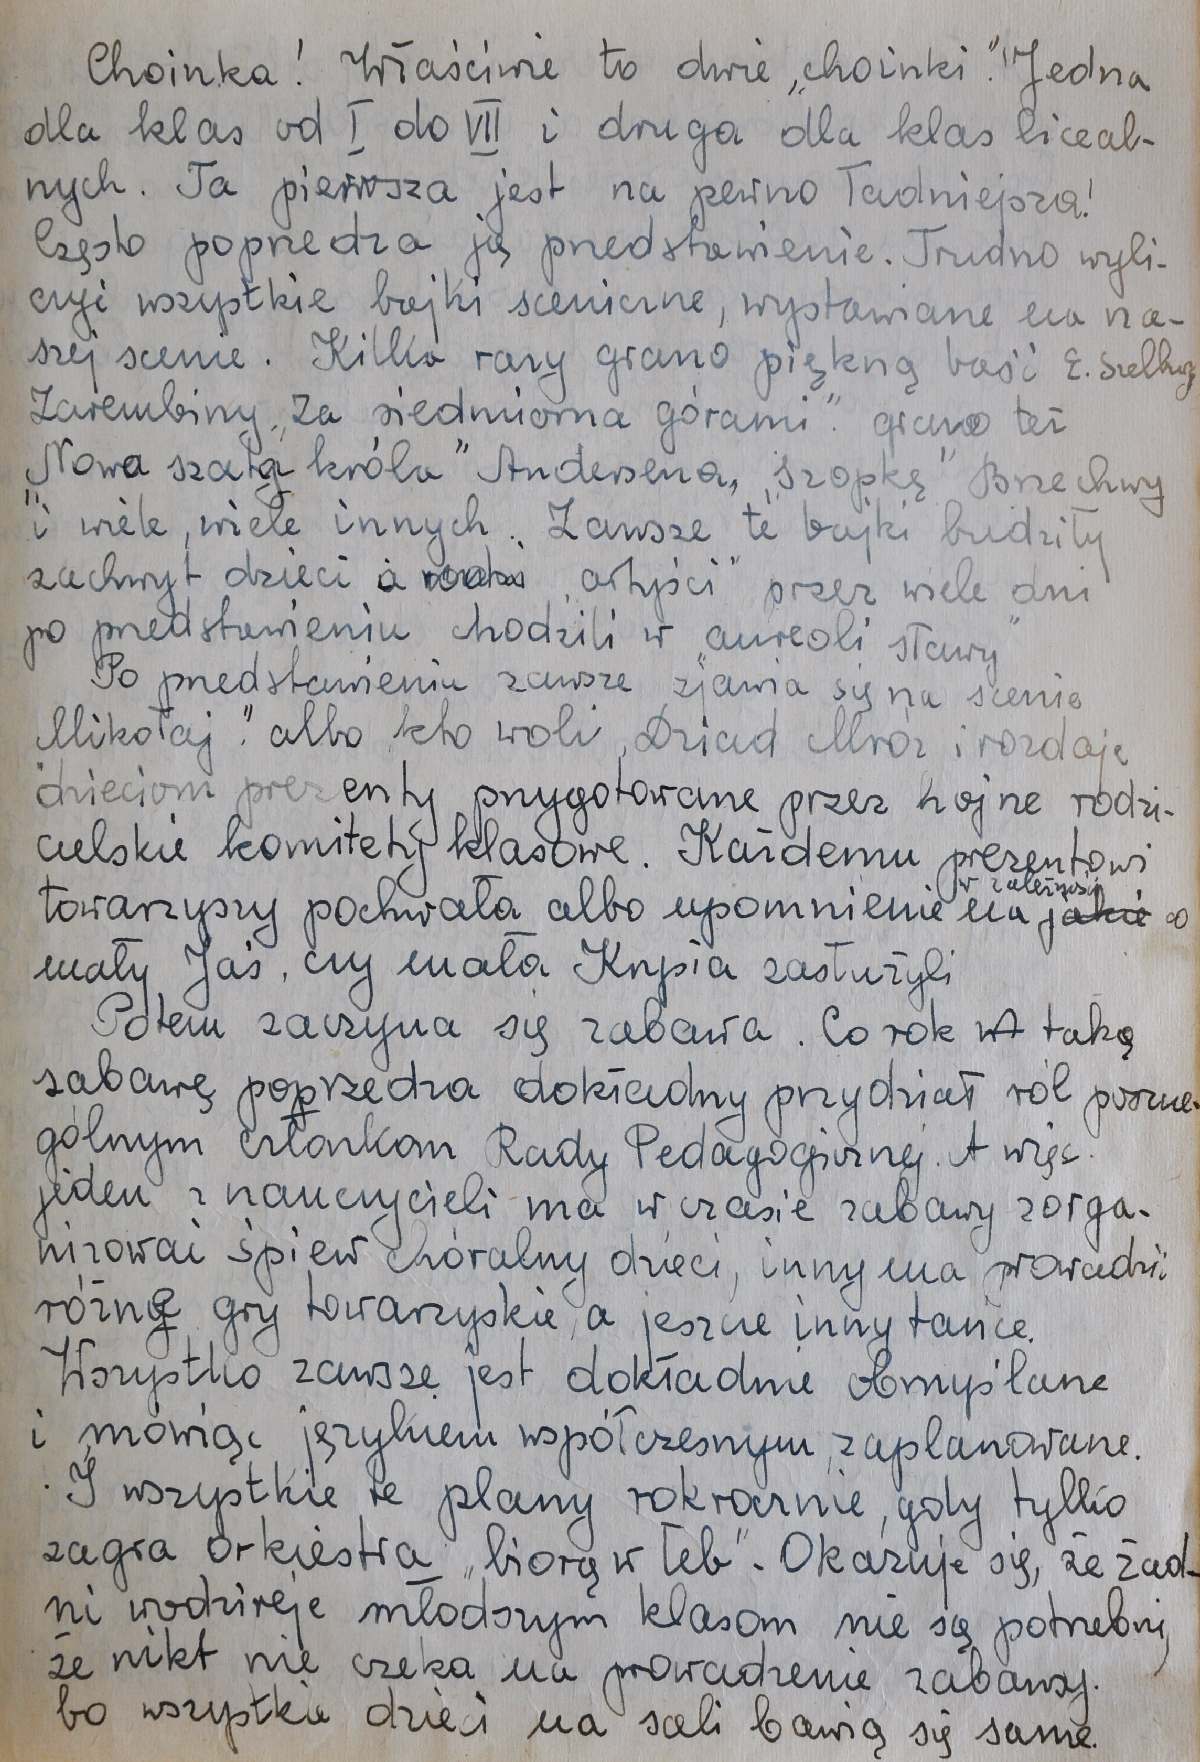 Choinka! Właściwie to dwie „choinki". Jedna
dla klas od I do VII i druga dla klas liceal-
nych. Ta pierwsza jest na pewno ładniejsza!
Często poprzedza ją przedstawienie. Trudno wyli-
czyć wszystkie bajki sceniczne, wystawiane na na-
szej scenie. Kilka razy grano piękną baśń E. Szelburg
Zarembiny „Za siedmioma górami". grano też
„Nowa szatą króla" Andersena, „Szopkę" Brzechwy
i wiele, wiele innych. Zawsze te bajki budziły
zachwyt dzieci a „artyści" przez wiele dni
po przedstawieniu chodzili w „aureoli sławy"
Po przedstawieniu zawsze zjawia się na scenie
„Mikołaj" albo kto woli, Dziad Mróz i rozdaje
dzieciom prezenty przygotowane przez hojne rodzi-
cielskie komitety klasowe. Każdemu prezentowi
towarzyszy pochwała albo upomnienie w zależności na jakie co
mały Jaś, czy mała Krysia zasłużyli
Potem zaczyna się zabawa. Co rok taką
zabawę poprzedza dokładny przydział ról poszcze-
gólnym członkom Rady Pedagogicznej. A więc
jeden z nauczycieli ma w czasie zabawy zorga-
nizować śpiew chóralny dzieci, inny ma prowadzić
różne gry towarzyskie, a jeszcze inny tańce.
Wszystko zawsze jest dokładnie obmyślane
i mówiąc językiem współczesnym, zaplanowane.
I wszystkie te plany rokrocznie, gdy tylko
zagra orkiestra „biorą w łeb". Okazuje się, że żad-
ni wodzireje młodszym klasom nie są potrzebni,
że nikt nie czeka na prowadzenie zabawy.
bo wszystkie dzieci na sali bawią się same.